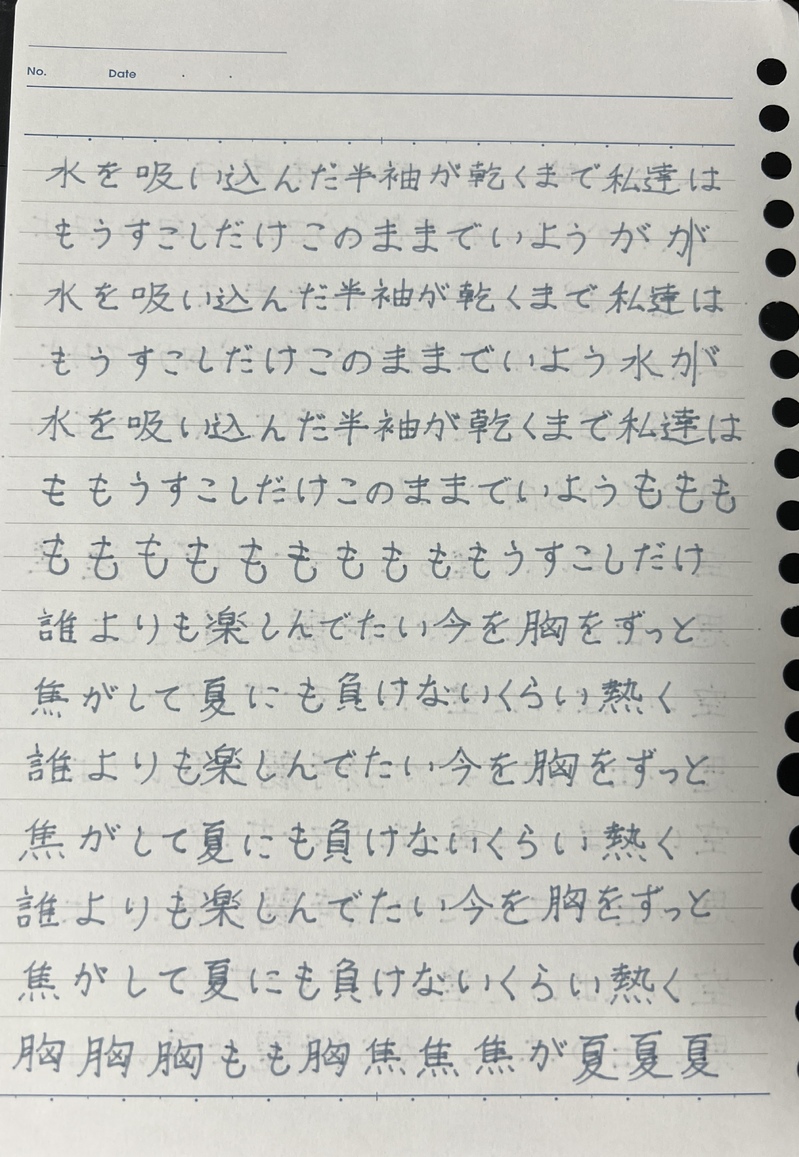 No. Date
水を吸い込んだ半袖が乾くまで私達は
もうすこしだけこのままでいようがが
水を吸い込んだ半袖が乾くまで私達は
もうすこしだけこのままでいよう水が
水を吸い込んだ半袖が乾くまで私達は
ももうすこしだけこのままでいようももも
ももももももももももうすこしだけ
誰よりも楽しんでたい今を胸をずっと
焦がして夏にも負けないくらい熱く
誰よりも楽しんでたい今を胸をずっと
焦がして夏にも負けないくらい熱く
誰よりも楽しんでたい今を胸をずっと
焦がして夏にも負けないくらい熱く
胸胸胸もも胸焦焦焦が夏夏夏